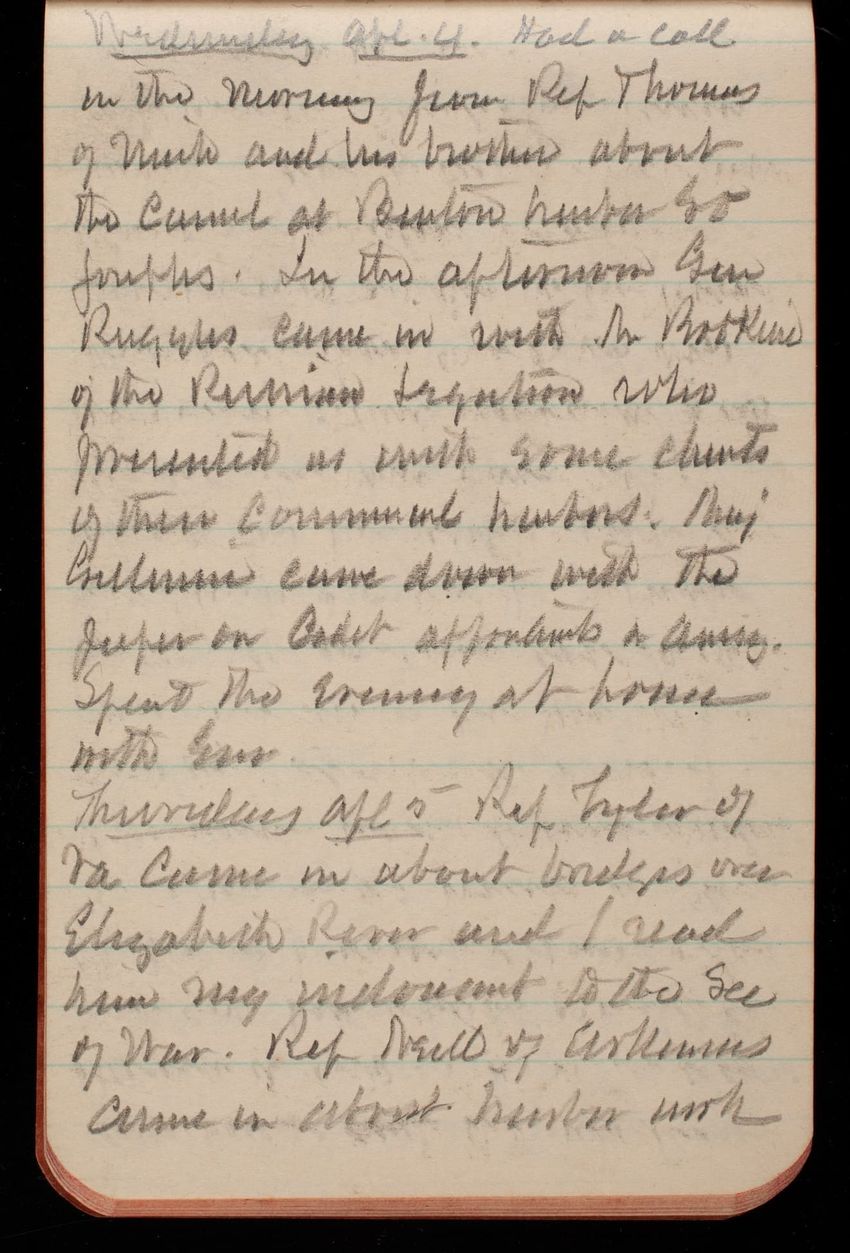 Wednesday Apl. 4. Had a call
in the morning from Rep Thomas
of Mich and his brother about
the Canal at Benton harbor &
Josephs. In the afternoon Gen
Ruggles came in with Mr
of the Russian Legation who
presented us with some charts
of their Commercial harbors. Maj
came down with the
paper on Cadet appointments
Spent the evening at home
with
Thursday Apl 5 Rep Tyler of
Va Came in about bridges over
Elizabeth River and I read
him my indorsement to the Sec
of War. Rep Neill of Arkansas
came in about harbor work